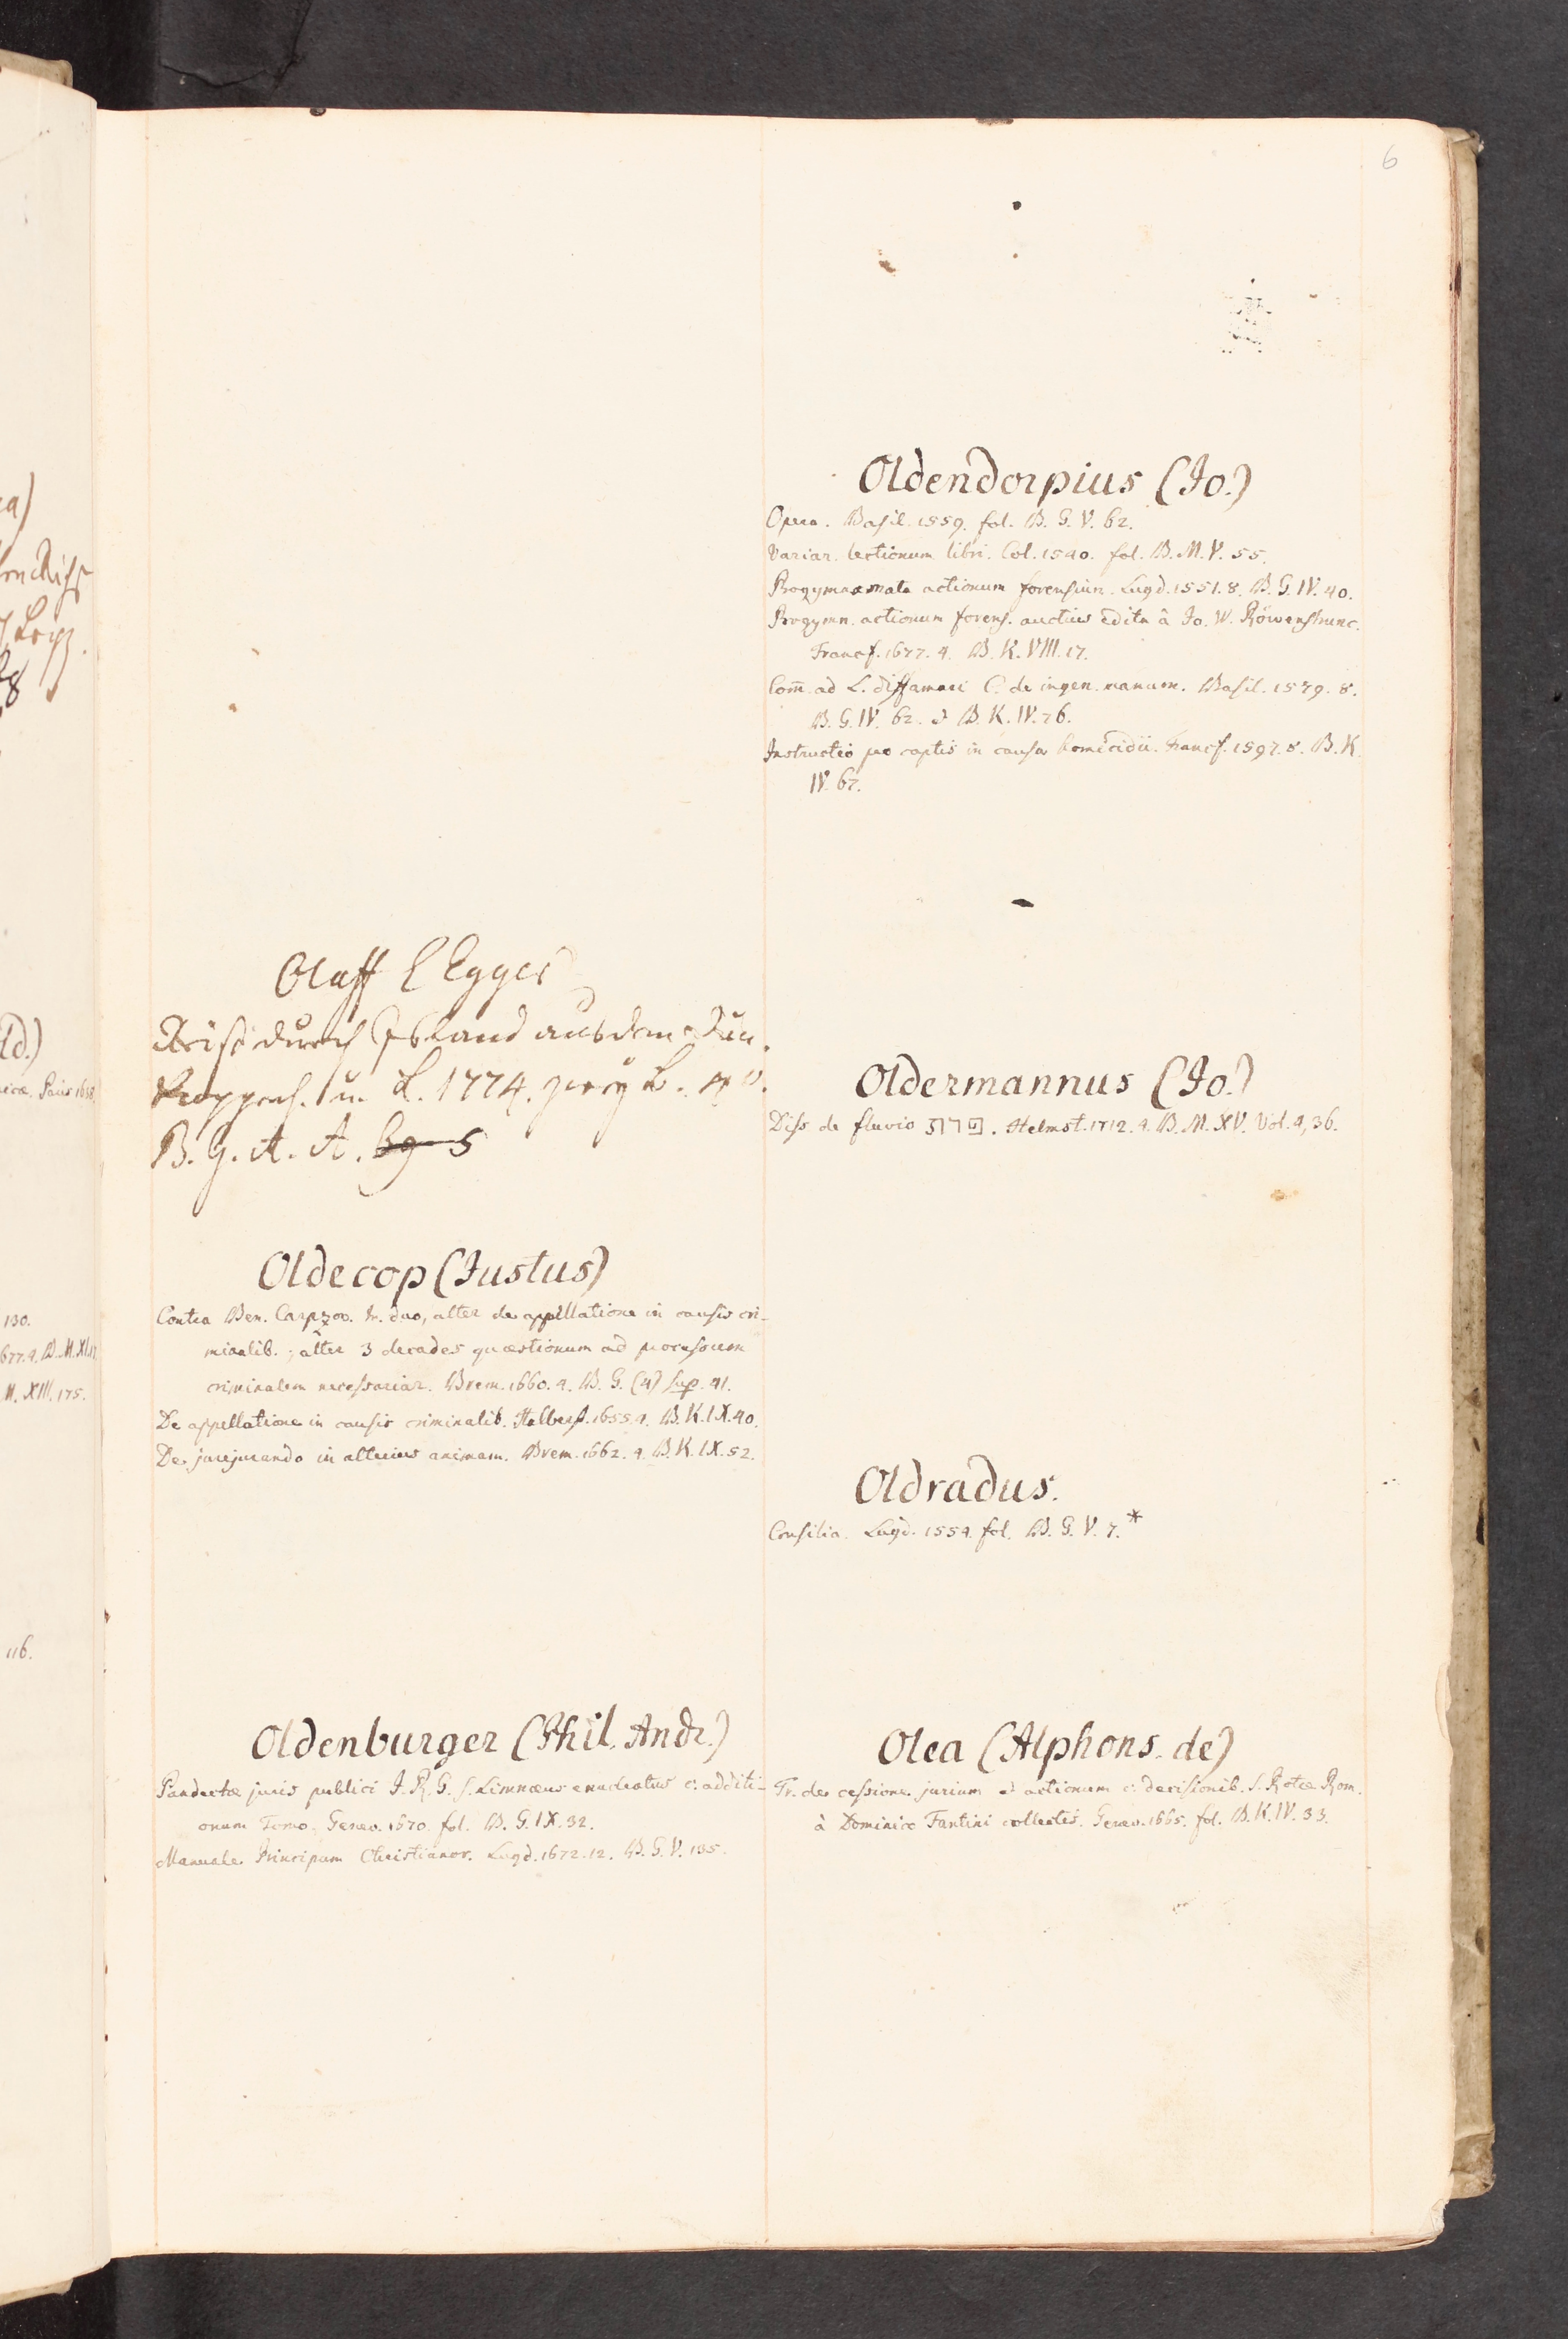 6
Olaff E Egges
Reise durch Island aus dem Dän.
Koppenh. u. L. 1774. zwey B. 4to.
B. G. A. A. 69 5
Oldecop (Justus)
Contra Ben. Carpzov. tr. duo, alter de appellatione in causis cri-
minalib.; alter 3 decades quæstionum ad processum
criminalem necessariar. Brem. 1660. 4. B. G. (4) sup. 41.
De appellatione in causis criminalib. Halberst. 1655. 4. B. K. IX. 40.
De jurejurando in alterius animam. Brem. 1662. 4. B. K. IX. 52.
Oldenburger (Phil. Andr.)
Pandectæ juris publici I. R. G. s. Limnæus enucleatus c. additi-
onum Tomo. Genev. 1670. fol. B. G. IX. 32.
Manuale Principum Christianor. Lugd. 1672. 12. B. G. V. 135.
Oldendorpius (Jo.)
Opera. Basil. 1559. fol. B. G. V. 62.
Variar. lectionum libri. Col. 1540. fol. B. M. V. 55.
Progymnasmata actionum forensium. Lugd. 1551. 8. B. G. IV. 40.
Progymn. actionum forens. auctius edita à Jo. W. Röwenstrunc.
Francf. 1677. 4. B. K. VIII. 17.
Com̄. ad L. diffamari C. de ingen. manum. Basil. 1579. 8.
B. G. IV. 62. & B. K. IV. 76.
Instructio pro captis in causa homicidii. Francf. 1597. 8. B. K.
IV. 67.
Oldermannus (Jo.)
Diss de fluvio . Helmst. 1712. 4. B. M. XV. Vol. 4, 36.
Oldradus.
Consilia. Lugd. 1554. fol. B. G. V. 7.*
Olea (Alphons. de)
Tr. de cessione jurium & actionum c. decisionib. S. Rotæ Rom.
à Dominico Fantini collectis. Genev. 1665. fol. B. K. IV. 33.